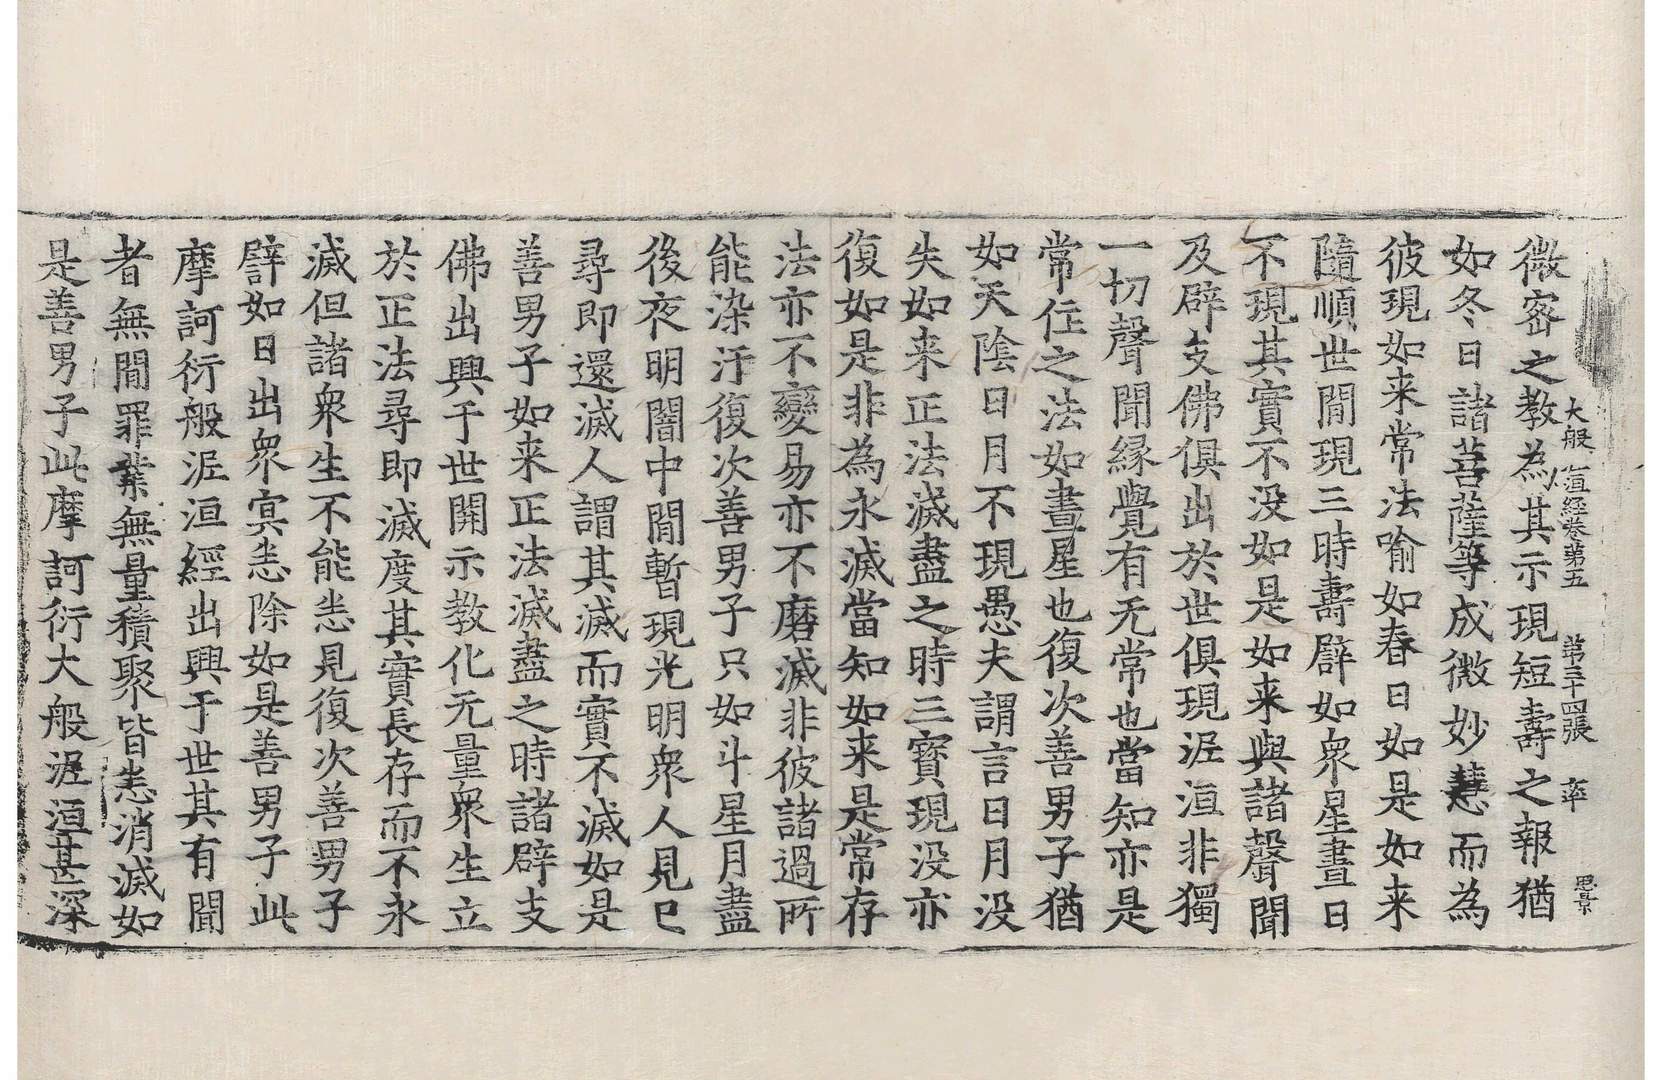 大般泥洹経卷苐五　苐三十四張　率　思景
微密之教為其示現短壽之報猶
如冬日諸菩薩等成微妙慧而為
彼現如来常法喻如春日如是如来
隨順世閒現三時壽辟如衆星晝日
不現其實不没如是如来與諸聲聞
及辟支佛俱出於世俱現泥洹非獨
一切聲聞縁覺有无常也當知亦是
常住之法如晝星也復次善男子猶
如天陰日月不現愚夫謂言日月没
失如来正法滅盡之時三寳現没亦
復如是非為永滅當知如来是常存
法亦不變易亦不磨滅非彼諸過所
能染汙復次善男子只如斗星月盡
後夜明闇中閒暫現光明衆人見已
尋即還滅人謂其滅而實不滅如是
善男子如来正法滅盡之時諸辟支
佛出興于世開示教化无量衆生立
於正法尋即滅度其實長存而不永
滅但諸衆生不能悉見復次善男子
譬如日出衆㝠悉除如是善男子此
摩訶衍般泥洹經出興于世其有聞
者無閒罪業無量積聚皆悉消滅如
是善男子此摩訶衍大般泥洹甚深